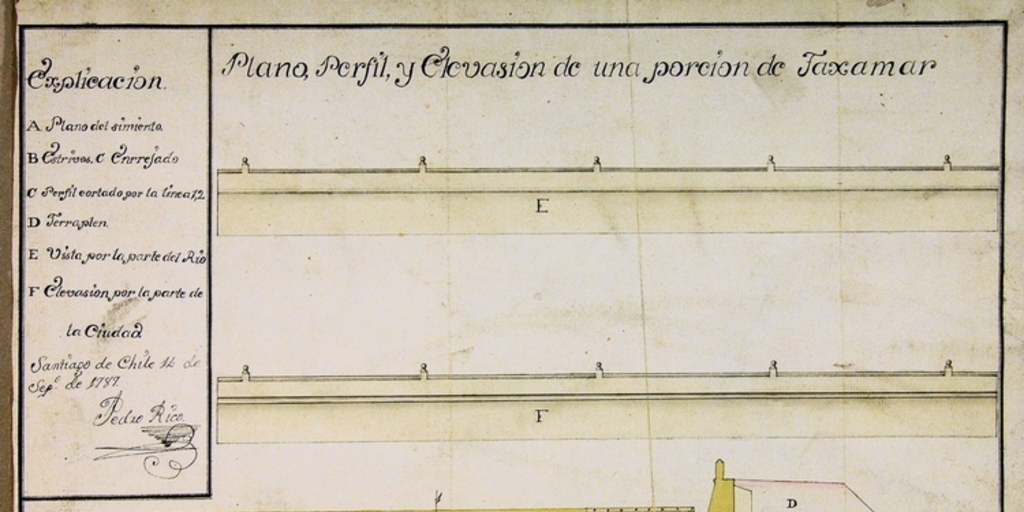 Plano, Perfil, y Elevasion de una porcion de Taxamar
Explicacion.
A Plano del simiento.
B Estrivos. C Enrrejado
C Perfil cortado por la linea 1,2
D Terraplen.
E Vista por la parte del Rio
F Elevasion por la parte de
la Ciudad
Santiago de Chile 14 de
Sep.e de 1787.
Pedro Rico.
E
F
D